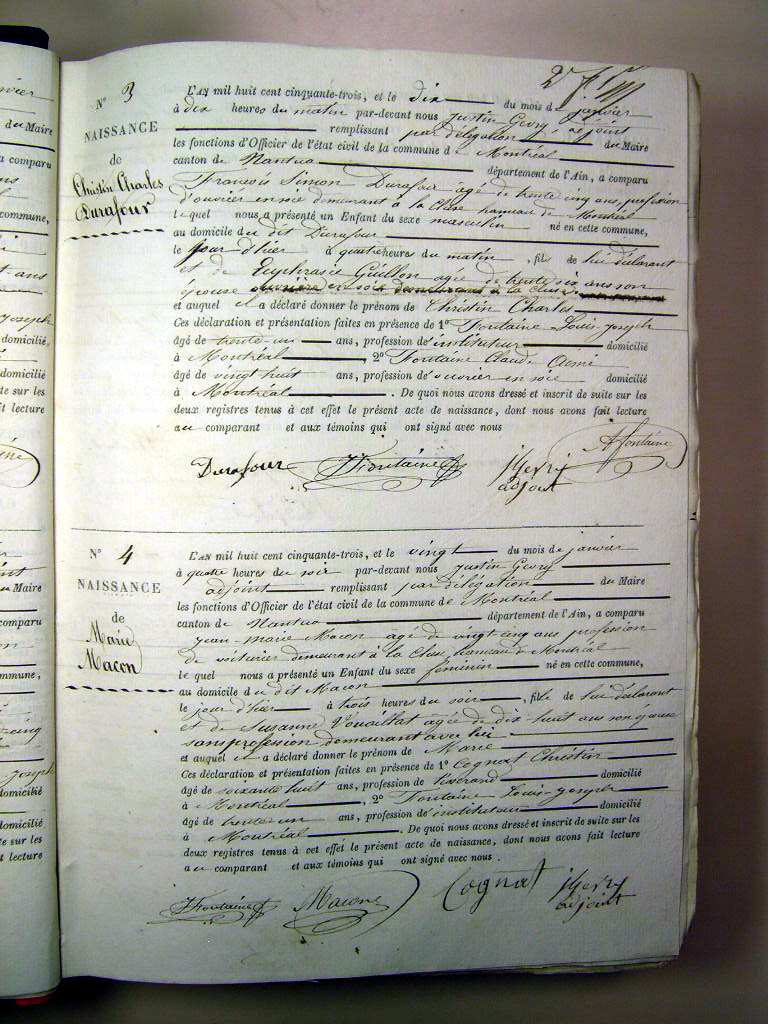 2e f
N° 3
NAISSANCE
de
Christin Charles
Durafour
L'AN mil huit cent cinquante-trois, et le dix du mois de janvier
à dix heures du matin par-devant nous Justin Gevry, adjoint
remplissant par délégation du Maire
les fonctions d'Officier de l'état civil de la commune de Montréal
canton de Nantua département de l'Ain, a comparu
François Simon Durafour agé de trente cinq ans, profession
d'ouvrier en soie demeurant à la Cluse hameau de Montréal
lequel nous a présenté un Enfant du sexe masculin né en cette commune,
au domicile du dit Durafour
le jour d'hier à quatre heures du matin, fils de lui déclarant
et de Euphrasie Guillon agée de trente six ans son
épouse
et auquel il a déclaré donner le prénom de Christin Charles
Ces déclaration et présentation faites en présence de 1° Fontaine Louis Joseph
âgé de trente-un ans, profession d'instituteur domicilié
à Montréal, 2° Fontaine Claude Aimé
âgé de vingt huit ans, profession d'ouvrier en soie domicilié
à Montréal. De quoi nous avons dressé et inscrit de suite sur les
deux registres tenus à cet effet le présent acte de naissance, dont nous avons fait lecture
au comparant et aux témoins qui ont signé avec nous
Durafour JFontaine JGevry Afontaine
adjoint
N° 4
NAISSANCE
de
Marie
Macon
L'AN mil huit cent cinquante-trois, et le vingt du mois de janvier
à quatre heures du soir par-devant nous Justin Gevry
adjoint remplissant par délégation du Maire
les fonctions d'Officier de l'état civil de la commune de Montréal
canton de Nantua département de l'Ain, a comparu
Jean-Marie Macon agé de vingt cinq ans profession
de voiturier demeurant à la Cluse, hameau de Montréal
lequel nous a présenté un Enfant du sexe féminin né en cette commune,
au domicile du dit Macon
le jour d'hier à trois heures du soir, fille de lui déclarant
et de Suzanne Vouaillat agée de dix-huit ans son épouse
sans profession demeurant avec lui
et auquel il a déclaré donner le prénom de Marie
Ces déclaration et présentation faites en présence de 1° Cognat Christin
âgé de soixante huit ans, profession de tisserand domicilié
à Montréal, 2° Fontaine Louis-Joseph
âgé de trente un ans, profession d'instituteur domicilié
à Montréal. De quoi nous avons dressé et inscrit de suite sur les
deux registres tenus à cet effet le présent acte de naissance, dont nous avons fait lecture
au comparant et aux témoins qui ont signé avec nous.
JFontaine Macon Cognat JGevry
adjoint